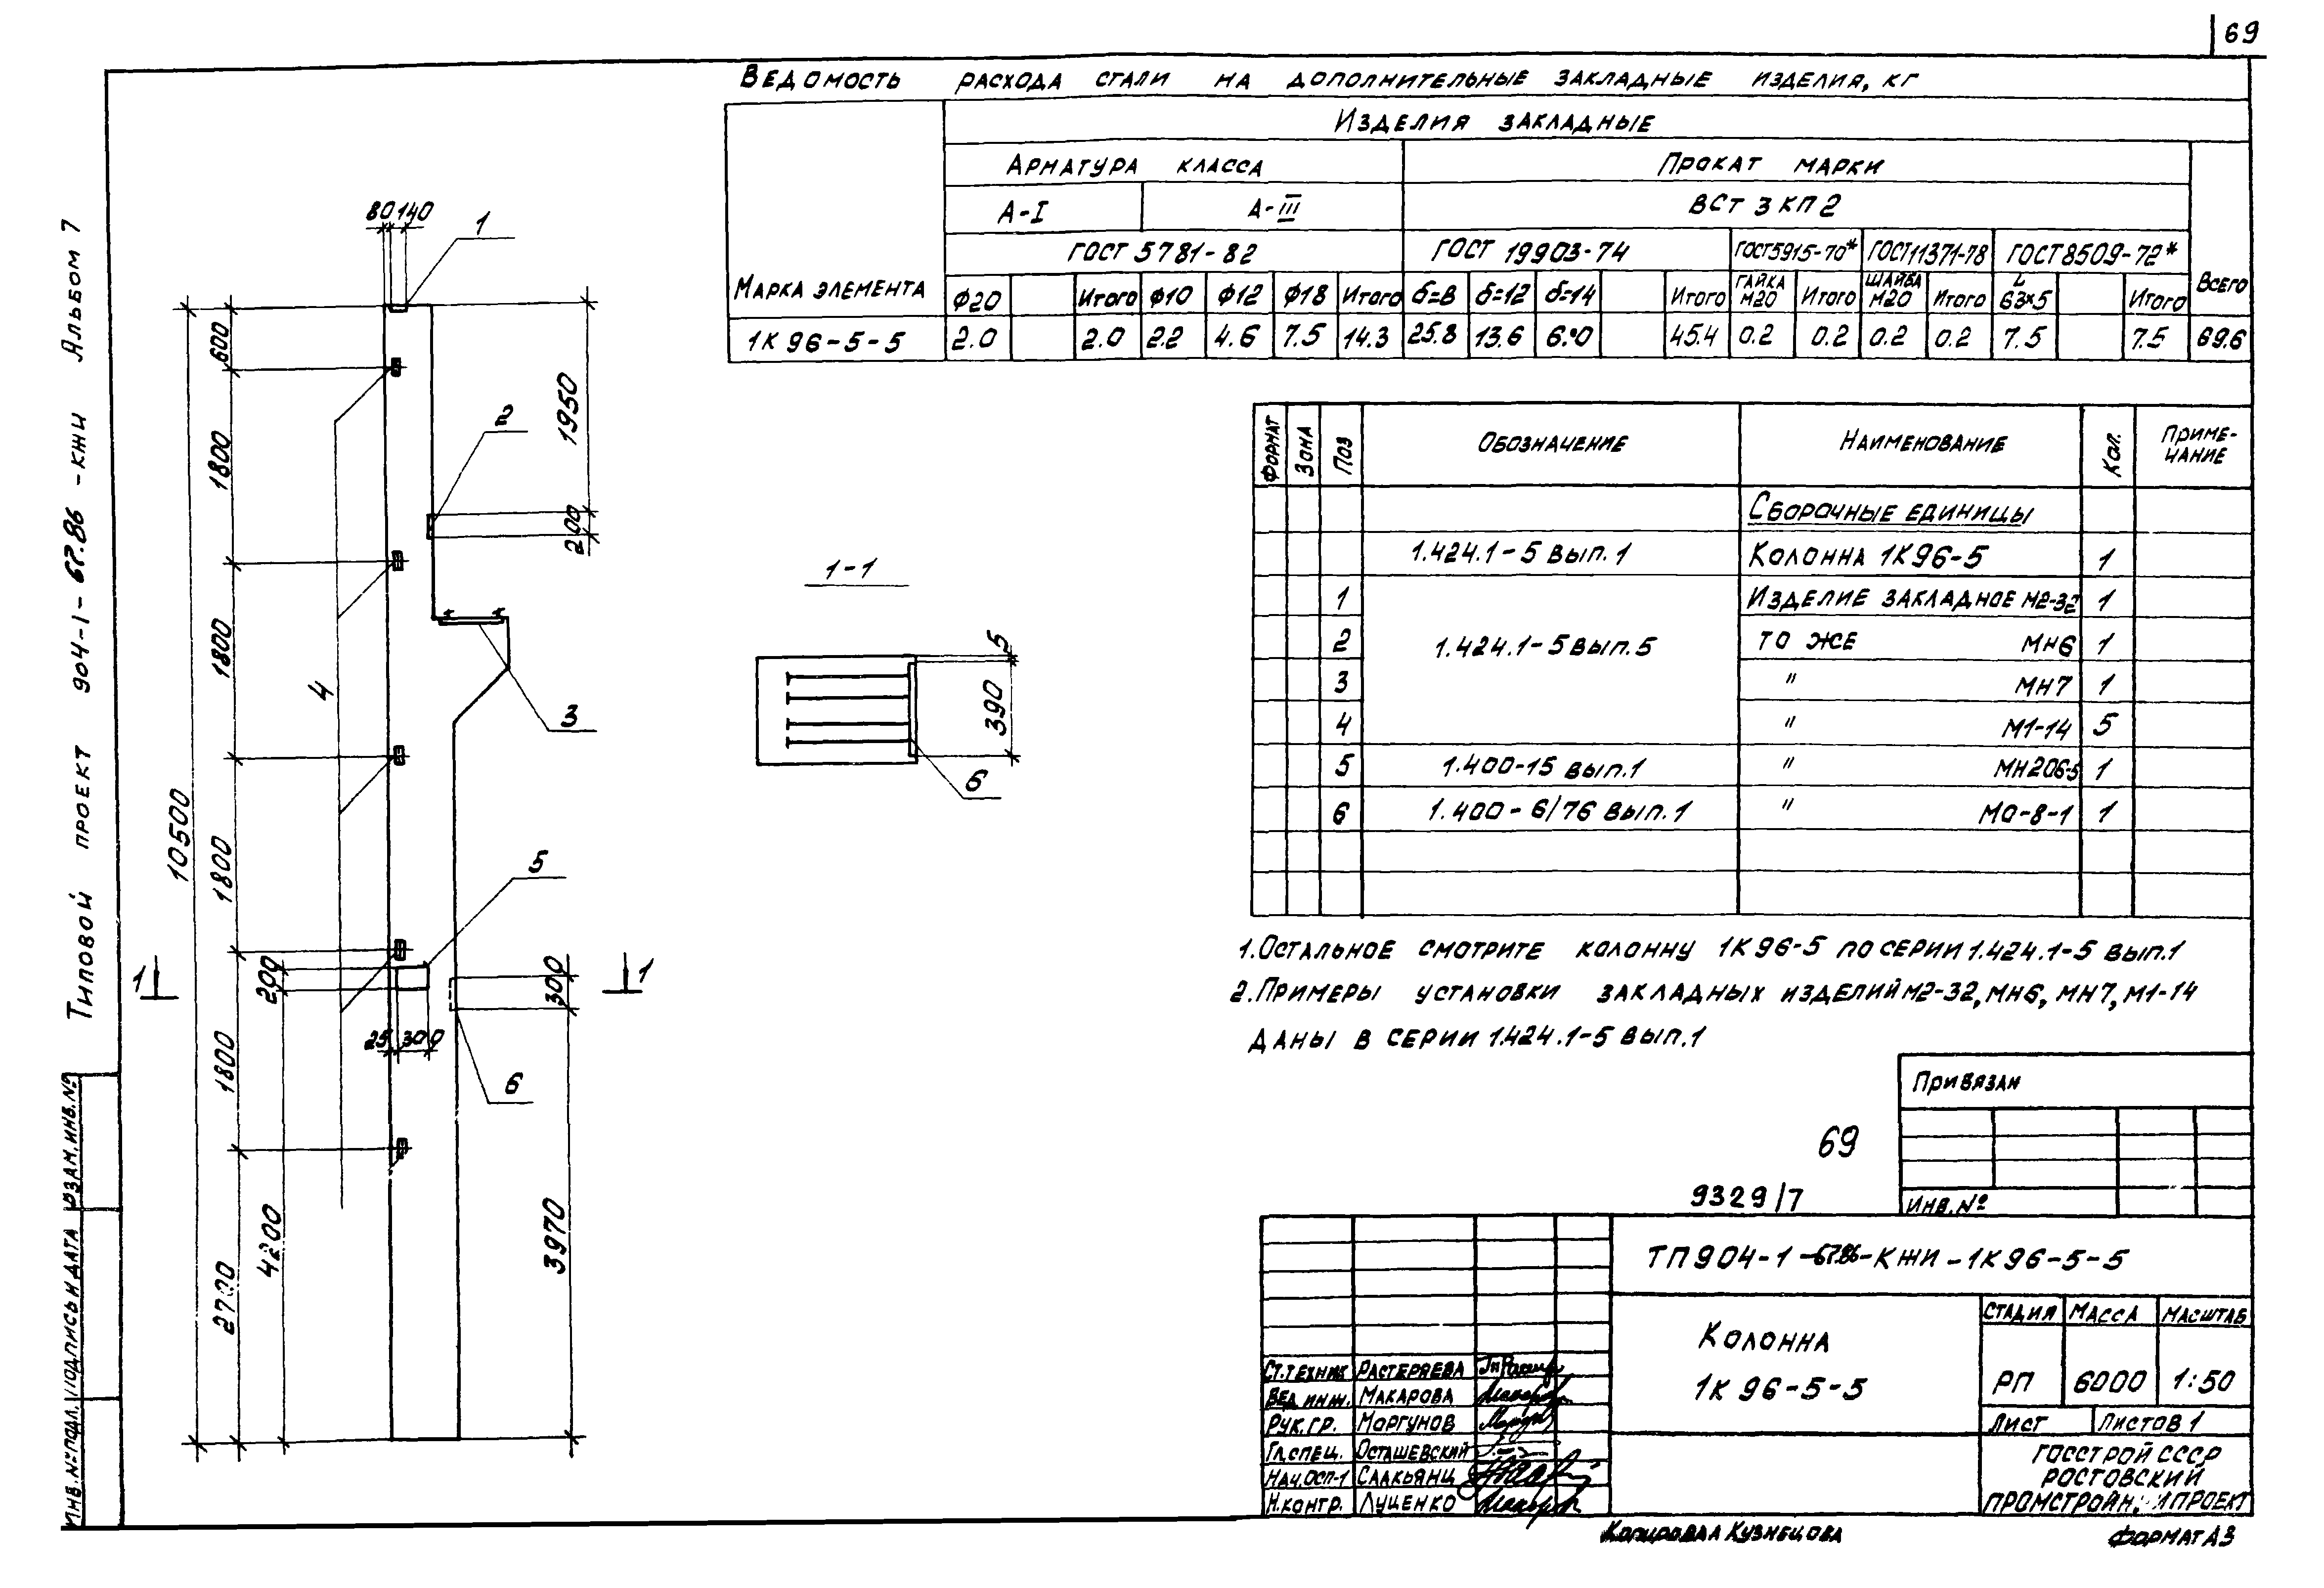 69
Типовой проект 904-1-67.86-КЖИ Альбом 7
Ведомость расхода стали на дополнительные закладные изделия, кг
Марка элемента
Изделия закладные
Арматура класса
Прокат марки
Всего
А-I
А-III
ВСт 3 кп 2
ГОСТ 5781-82
ГОСТ 19903-74
ГОСТ5915-70*
ГОСТ11371-78
ГОСТ8509-72*
Ф20 Итого Ф10 Ф12 Ф18 Итого δ=8 δ=12 δ=14 Итого Гайка М20 Итого Шайба М20 Итого L 63×5 Итого
1К96-5-5 2.0 2.0 2.2 4.6 7.5 14.3 25.8 13.6 6.0 45.4 0.2 0.2 0.2 0.2 7.5 7.5 69.6
80 140
1
600
1800
1800
1800
1800
2700
10500
4200
200
1950
200
2
3
4
5
6
25 300
300
3970
1 1
1-1
5
390
6
Формат Зона Поз Обозначение Наименование Кол. Приме-
чание
Сборочные единицы
1.424.1-5 вып.1 Колонна 1К96-5 1
1 Изделие закладное М2-32 1
2 1.424.1-5 вып.5 То же МН6 1
3 " МН7 1
4 " М1-14 5
5 1.400-15 вып.1 " МН206-5 1
6 1.400-6/76 вып.1 " МО-8-1 1
1. Остальное смотрите колонну 1К96-5 по серии 1.424.1-5 вып.1
2. Примеры установки закладных изделий М2-32, МН6, МН7, М1-14
даны в серии 1.424.1-5 вып.1
Привязан
Инв.№
69
9329/7
ТП904-1-67.86-КЖИ-1К96-5-5
Колонна
1К96-5-5
Стадия Масса Масштаб
РП 6000 1:50
Лист Листов 1
Госстрой СССР
Ростовский
Ст.техник Растеряева
Вед.инж. Макарова
Рук.гр. Моргунов
Гл.спец. Осташевский
Нач.ОСП-1 Саакьянц
Н.контр. Луценко
Инв.№подл. Подпись и дата Взам.инв.№
Копировал Кузнецова
Формат А3